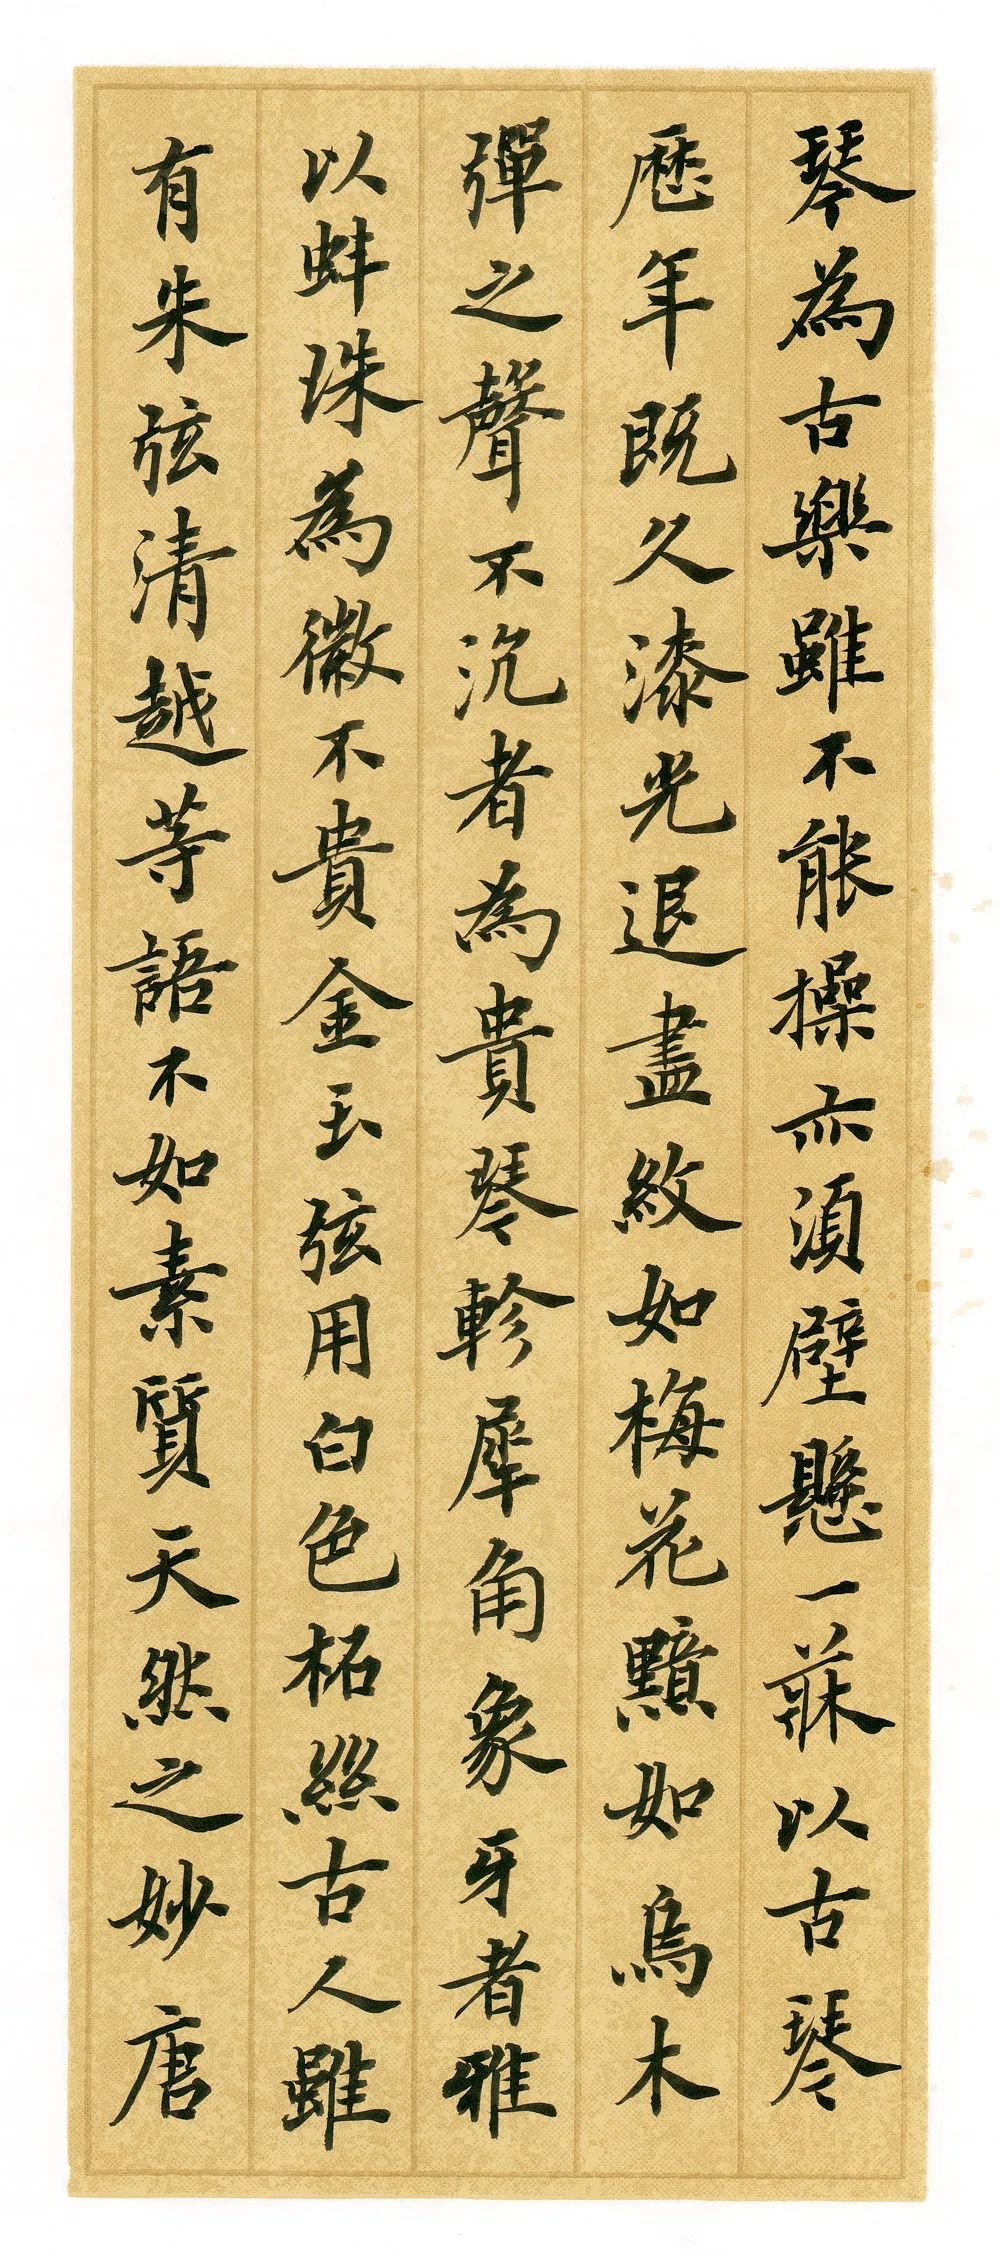 琴為古樂雖不能操亦須壁懸一牀以古琴
歷年既久漆光退盡紋如梅花黯如烏木
彈之聲不沉者為貴琴軫犀角象牙者雅
以蚌珠為徽不貴金玉弦用白色柘絲古人雖
有朱弦清越等語不如素質天然之妙唐